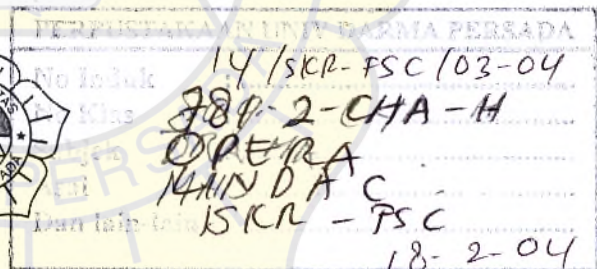 PERPUSTAKAAN UNIV DARMA PERSADA
No Induk 14/SKR-FSC/03-04
No Klas 789-2-CHA-H
OPERA
Dan lain-lain SKR - FSC
18-2-04